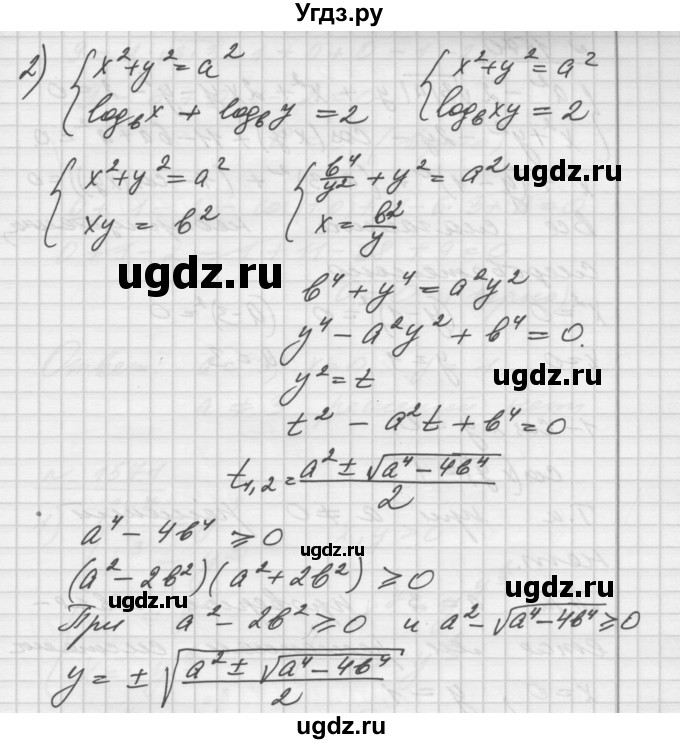 Угдз.ру
2) { x²+y²=a²    { x²+y²=a²
log_b x + log_b y = 2    log_b xy = 2
{ x²+y²=a²    { b⁴/y² + y² = a²
ugdz.ru
xy = b²    x = b²/y
ugdz.ru
b⁴+y⁴=a²y²
y⁴-a²y²+b⁴=0.
y²=t
ugdz.ru
t² - a²t+b⁴=0
t₁,₂=(a² ± √(a⁴-4b⁴))/2
a⁴-4b⁴ ⩾0
ugdz.ru
(a²-2b²)(a²+2b²) ⩾0
ugdz.ru
ugdz.ru
При a²-2b²⩾0 и a²-√(a⁴-4b⁴)⩾0
y= ±√((a² ± √(a⁴-4b⁴))/2)
ugdz.ru